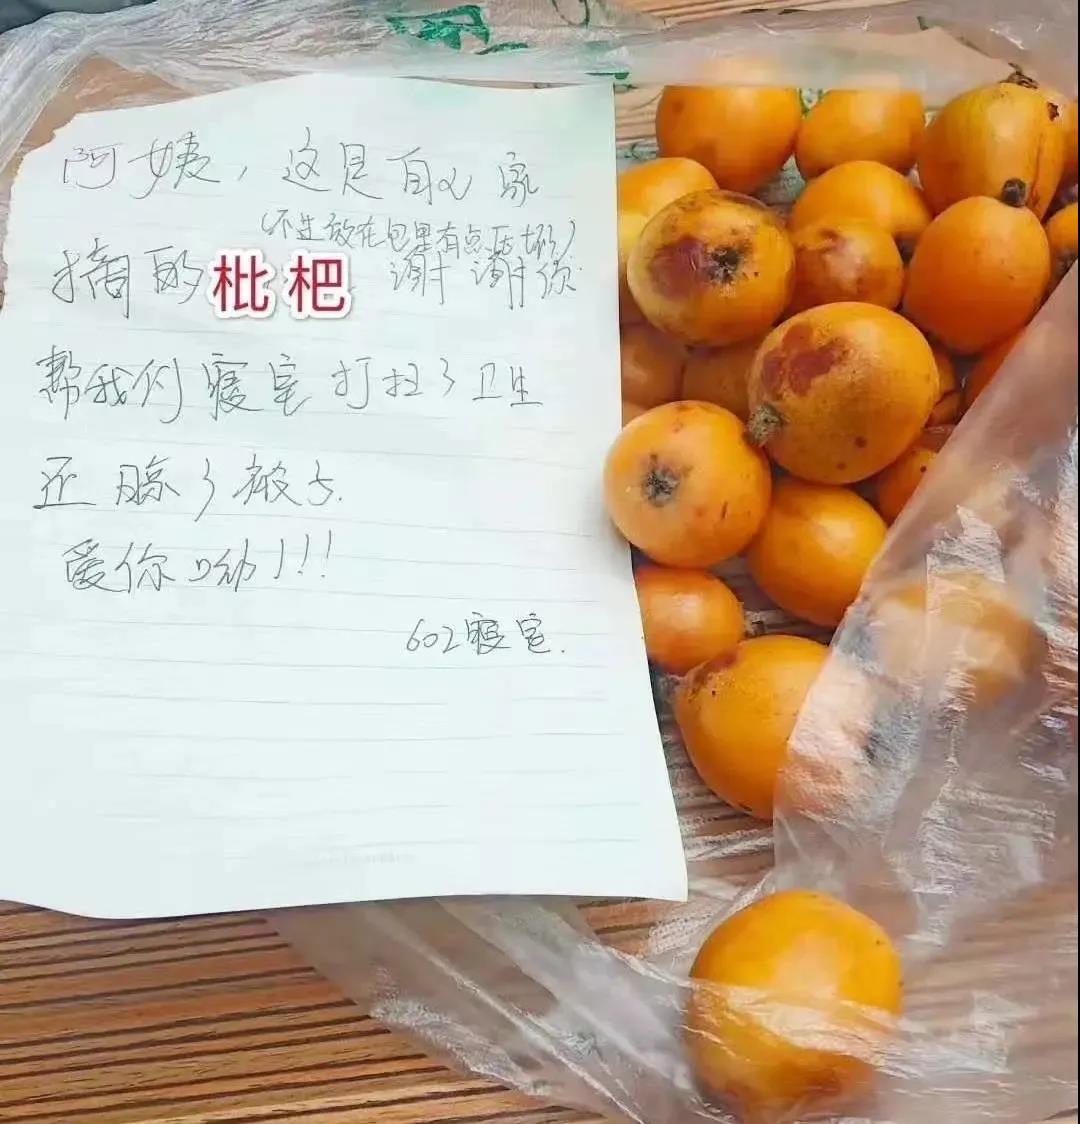 阿姨，这是自己家
（不过放在包里有点压坏）
摘的枇杷 谢谢你
帮我们寝室打扫了卫生
还晾了被子.
爱你呦!!!
602寝室.